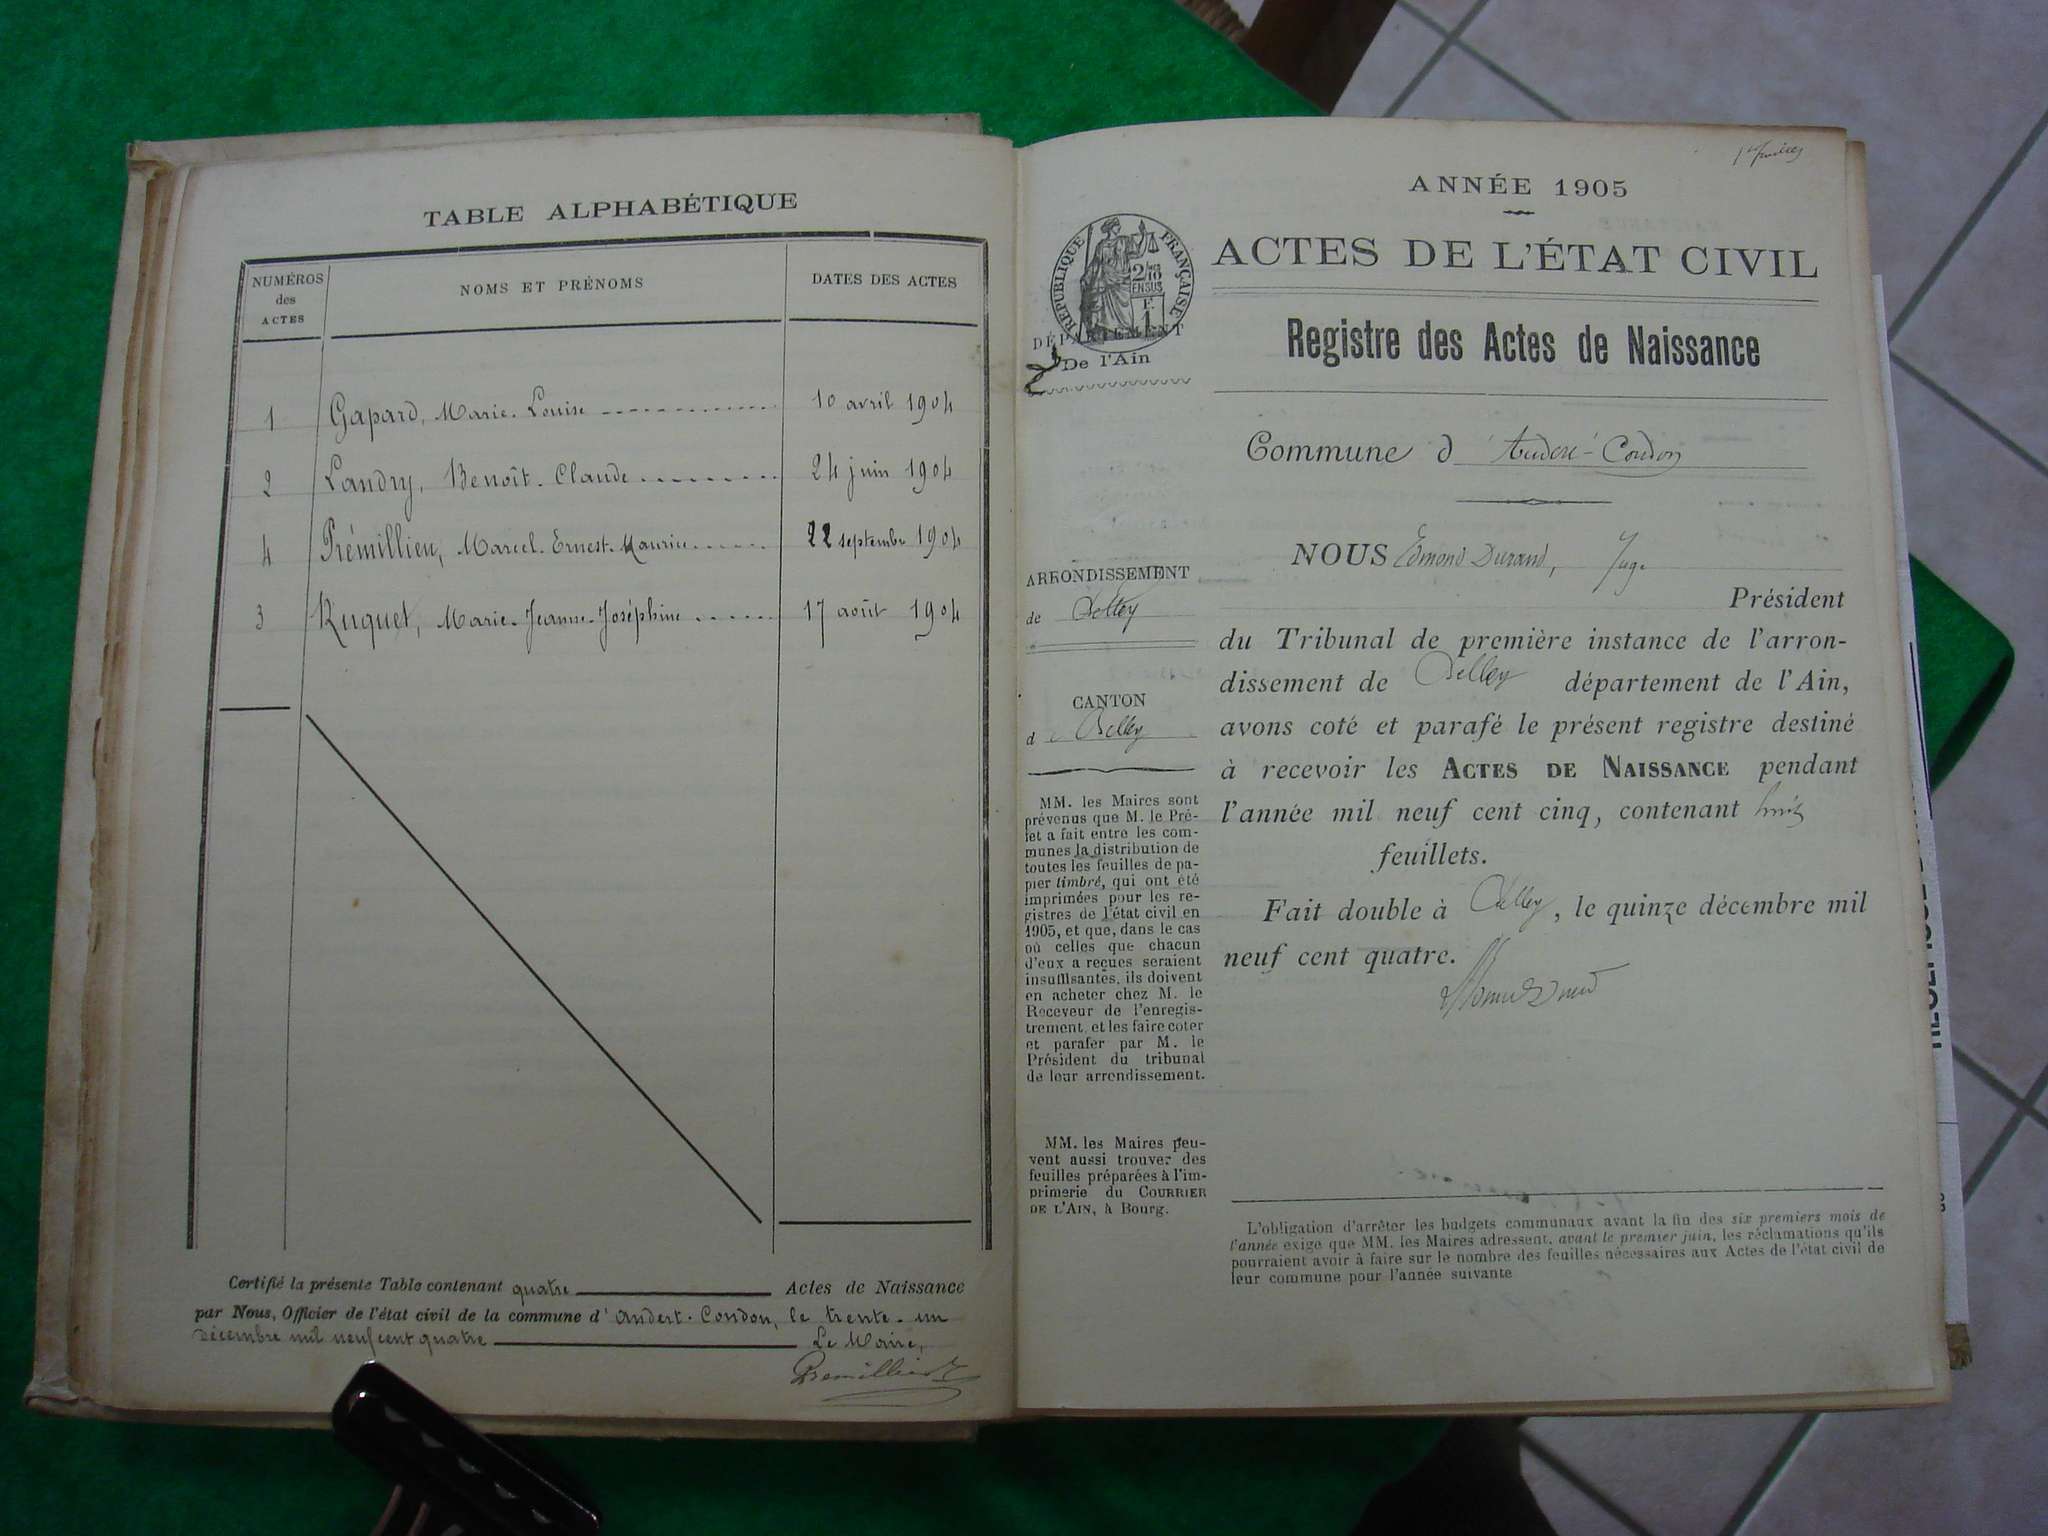 TABLE ALPHABÉTIQUE
NUMÉROS
des
ACTES
NOMS ET PRÉNOMS
DATES DES ACTES
1 Gapard, Marie-Louise 10 avril 1904
2 Landry, Benoît-Claude 24 juin 1904
4 Prémillieu, Marcel-Ernest-Maurice 22 septembre 1904
3 Ruquet, Marie-Jeanne-Joséphine 17 août 1904
Certifié la présente Table contenant quatre Actes de Naissance
par Nous, Officier de l'état civil de la commune d'Andert-Condon, le trente-un
décembre mil neuf cent quatre Le Maire,
Premillieu
ANNÉE 1905
RÉPUBLIQUE FRANÇAISE
2/10
EN SUS
F
1
DÉPARTEMENT
De l'Ain
ACTES DE L'ÉTAT CIVIL
Registre des Actes de Naissance
Commune d'Andert-Condon
ARRONDISSEMENT
de Belley
CANTON
de Belley
MM. les Maires sont
prévenus que M. le Pré-
fet a fait entre les com-
munes la distribution de
toutes les feuilles de pa-
pier timbré, qui ont été
imprimées pour les re-
gistres de l'état civil en
1905, et que, dans le cas
où celles que chacun
d'eux a reçues seraient
insuffisantes, ils doivent
en acheter chez M. le
Receveur de l'enregis-
trement, et les faire coter
et parafer par M. le
Président du tribunal
de leur arrondissement.
MM. les Maires peu-
vent aussi trouver des
feuilles préparées à l'im-
primerie du COURRIER
DE L'AIN, à Bourg.
NOUS Edmond Durand, Juge
Président
du Tribunal de première instance de l'arron-
dissement de Belley département de l'Ain,
avons coté et parafé le présent registre destiné
à recevoir les ACTES DE NAISSANCE pendant
l'année mil neuf cent cinq, contenant huit
feuillets.
Fait double à Belley, le quinze décembre mil
neuf cent quatre.
L'obligation d'arrêter les budgets communaux avant la fin des six premiers mois de
l'année exige que MM. les Maires adressent, avant le premier juin, les réclamations qu'ils
pourraient avoir à faire sur le nombre des feuilles nécessaires aux Actes de l'état civil de
leur commune pour l'année suivante